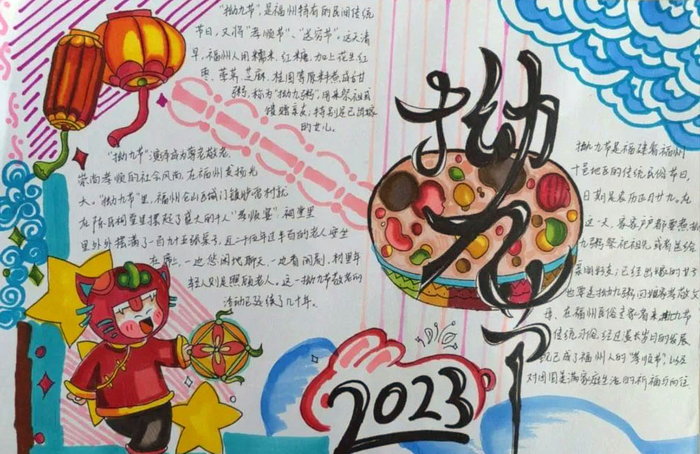 “拗九节”,是福州特有的民间传统
节日,又称“孝顺节”、“送穷节”,这天清
早,福州人用糯米、红糖,加上花生,红
枣、荸荠、芝麻、桂圆等原料煮成甜
粥,称为“拗九粥”,用来祭祖或
馈赠亲友,特别是已出嫁
的女儿。
“拗九节”演绎成为尊老敬老、
崇尚孝顺的社会风尚,在福州发扬光
大。“拗九节”里,福州仓山区城门镇胪雷村就
在陈氏祠堂里摆起了盛大的千人“孝顺宴”,祠堂里
里外外摆满了一百九十五张桌子,近一千四年过半百的老人安坐
在席,一边悠闲地聊天,一边看闽剧,村里年
轻人则是照顾老人。这一拗九节敬老的
活动已延续了几十年。
拗九节
拗九节是福建省福州
十邑地区的传统民俗节日,
日期是农历正月廿九,在
这一天,家家户户都要煮拗
九粥祭祀祖先,或者送给
亲朋好友,已经出嫁的女儿
也要送拗九粥回娘家孝敬父
母,在福州民俗文化看来,拗九节
传统习俗,经过漫长岁月的发展
就已成了福州人的“孝顺节”,以及
对团圆美满家庭生活的祈福与向往
2023